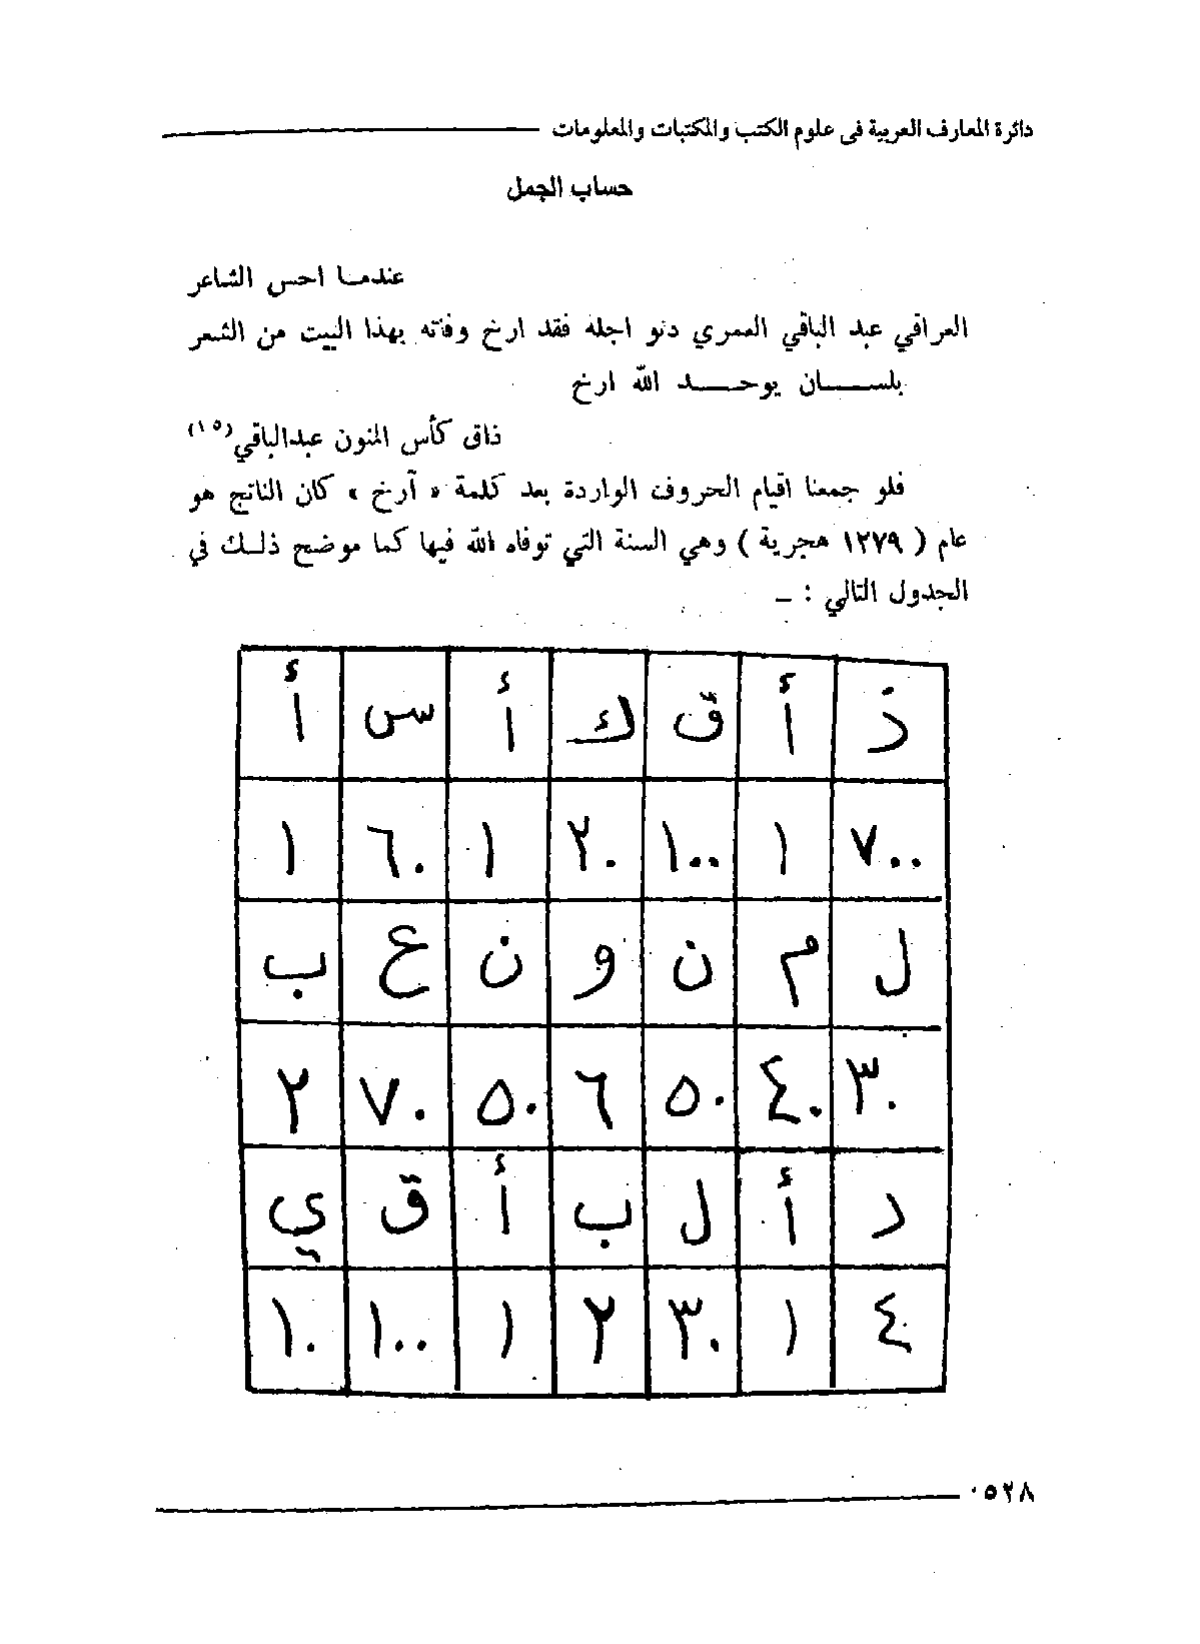 دائرة المعارف العربية فى علوم الكتب والمكتبات والمعلومات
حساب الجمل
عندمـا احس الشاعر
العراقي عبد الباقي العمري دنو اجله فقد ارخ وفاته بهذا البيت من الشعر
بلســـان يوحـــد الله ارخ
ذاق كأس المنون عبدالباقي(١٥)
فلو جمعنا اقيام الحروف الواردة بعد كلمة « آرخ » كان الناتج هو
عام ( ١٢٧٩ هجرية ) وهي السنة التي توفاه الله فيها كما موضح ذلـك في
الجدول التالي : ـ
ذ أ ق ك أ س أ
٧٠٠ ١ ١٠٠ ٢٠ ١ ٦٠ ١
ل م ن و ن ع ب
٣٠ ٤٠ ٥٠ ٦ ٥٠ ٧٠ ٢
د أ ل ب أ ق ي
٤ ١ ٣٠ ٢ ١ ١٠٠ ١٠
٠٥٢٨